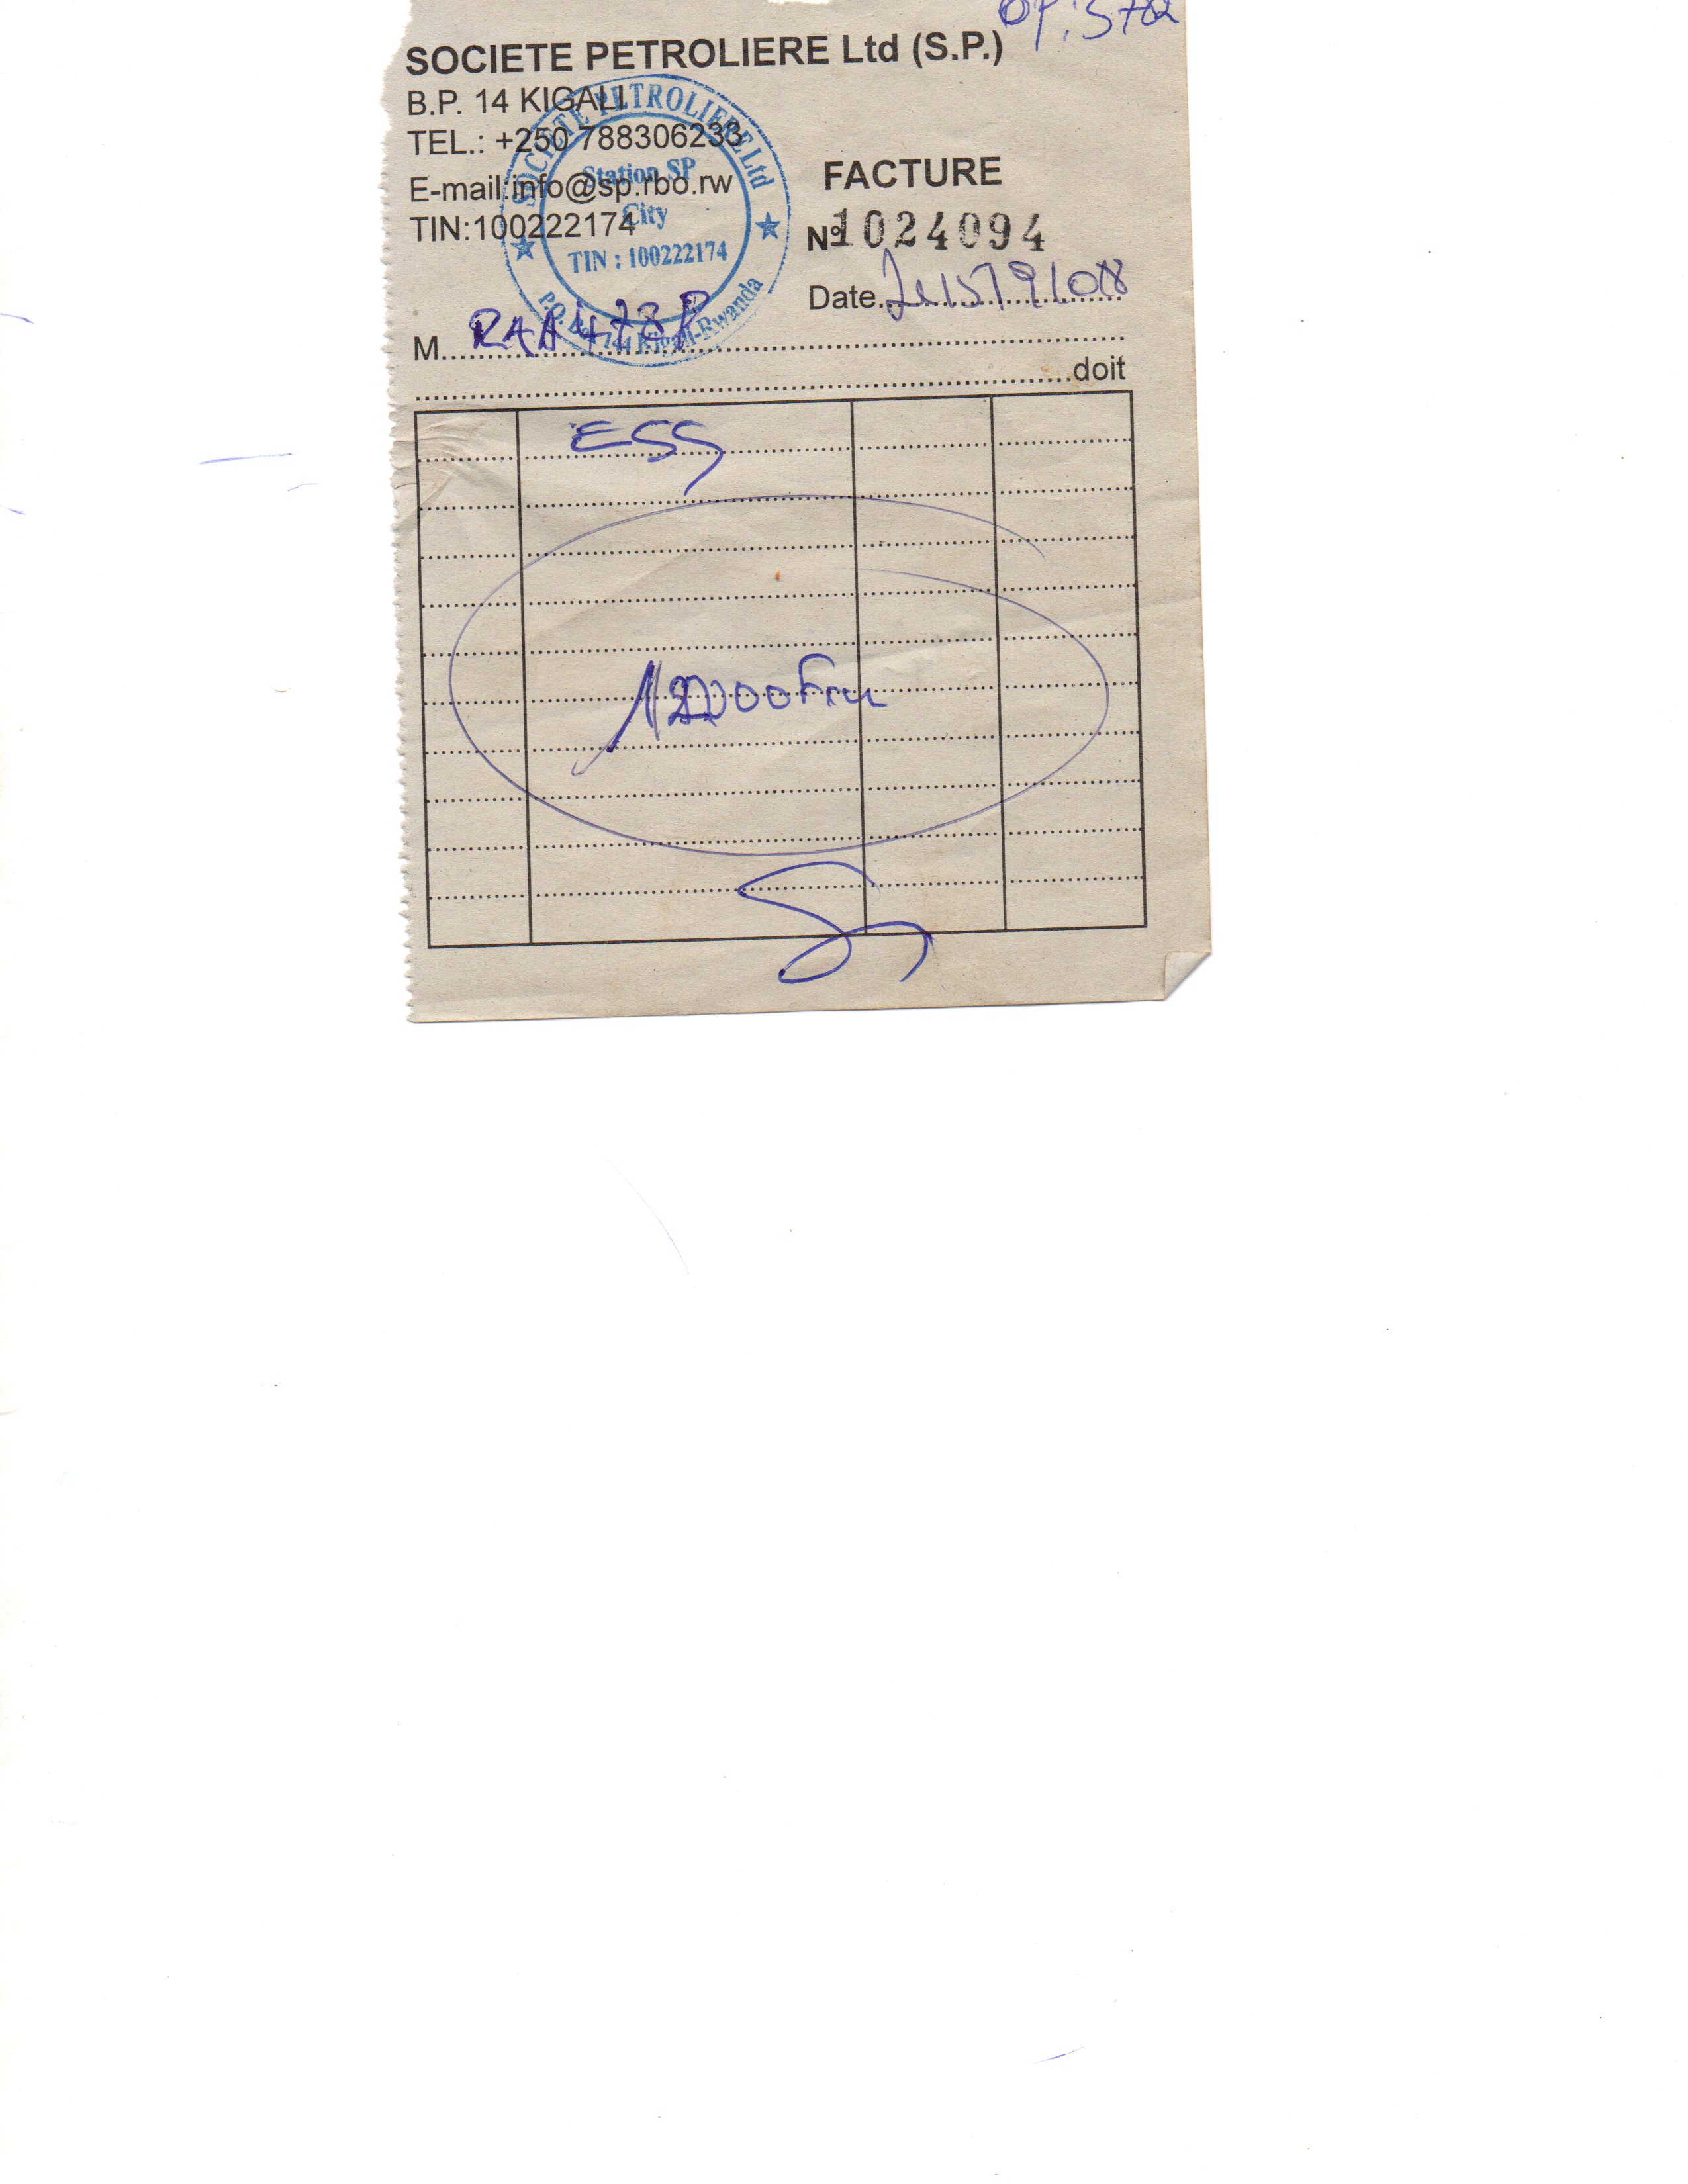 SOCIETE PETROLIERE Ltd (S.P.)
B.P. 14 KIGALI
TEL.: +250 788306233
E-mail:info@sp.rbo.rw
TIN:100222174
SOCIETE PETROLIERE Ltd
Station SP
City
TIN : 100222174
P.O. Kigali-Rwanda
FACTURE
Nº1024094
Date
M. RAA 478 P
doit
ESS